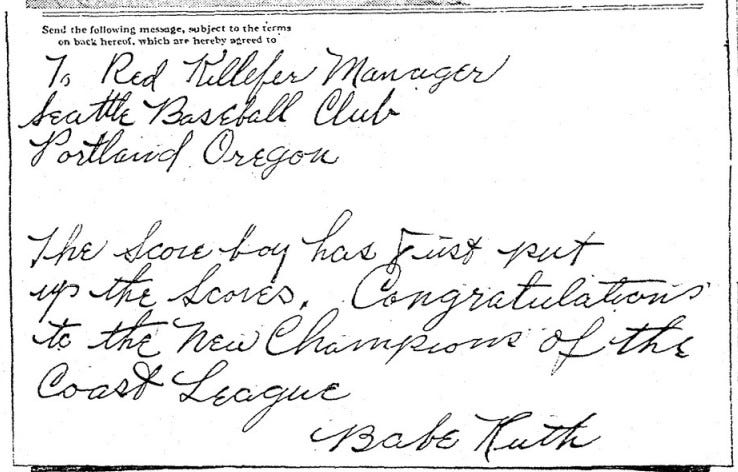 Send the following message, subject to the terms
on back hereof, which are hereby agreed to
To Red Killefer Manager
Seattle Baseball Club
Portland Oregon
The Score boy has Just put
up the Scores. Congratulations
to the New Champions of the
Coast League
Babe Ruth